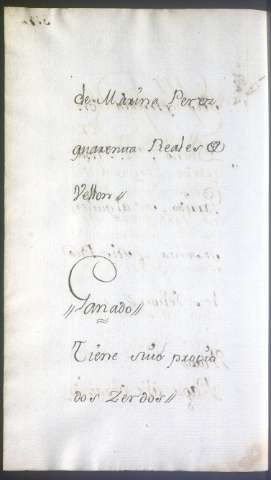 de Marina Perez
quarenta Reales @
Vellon//
//Ganado//
Tiene suio propio
dos Zerdos//